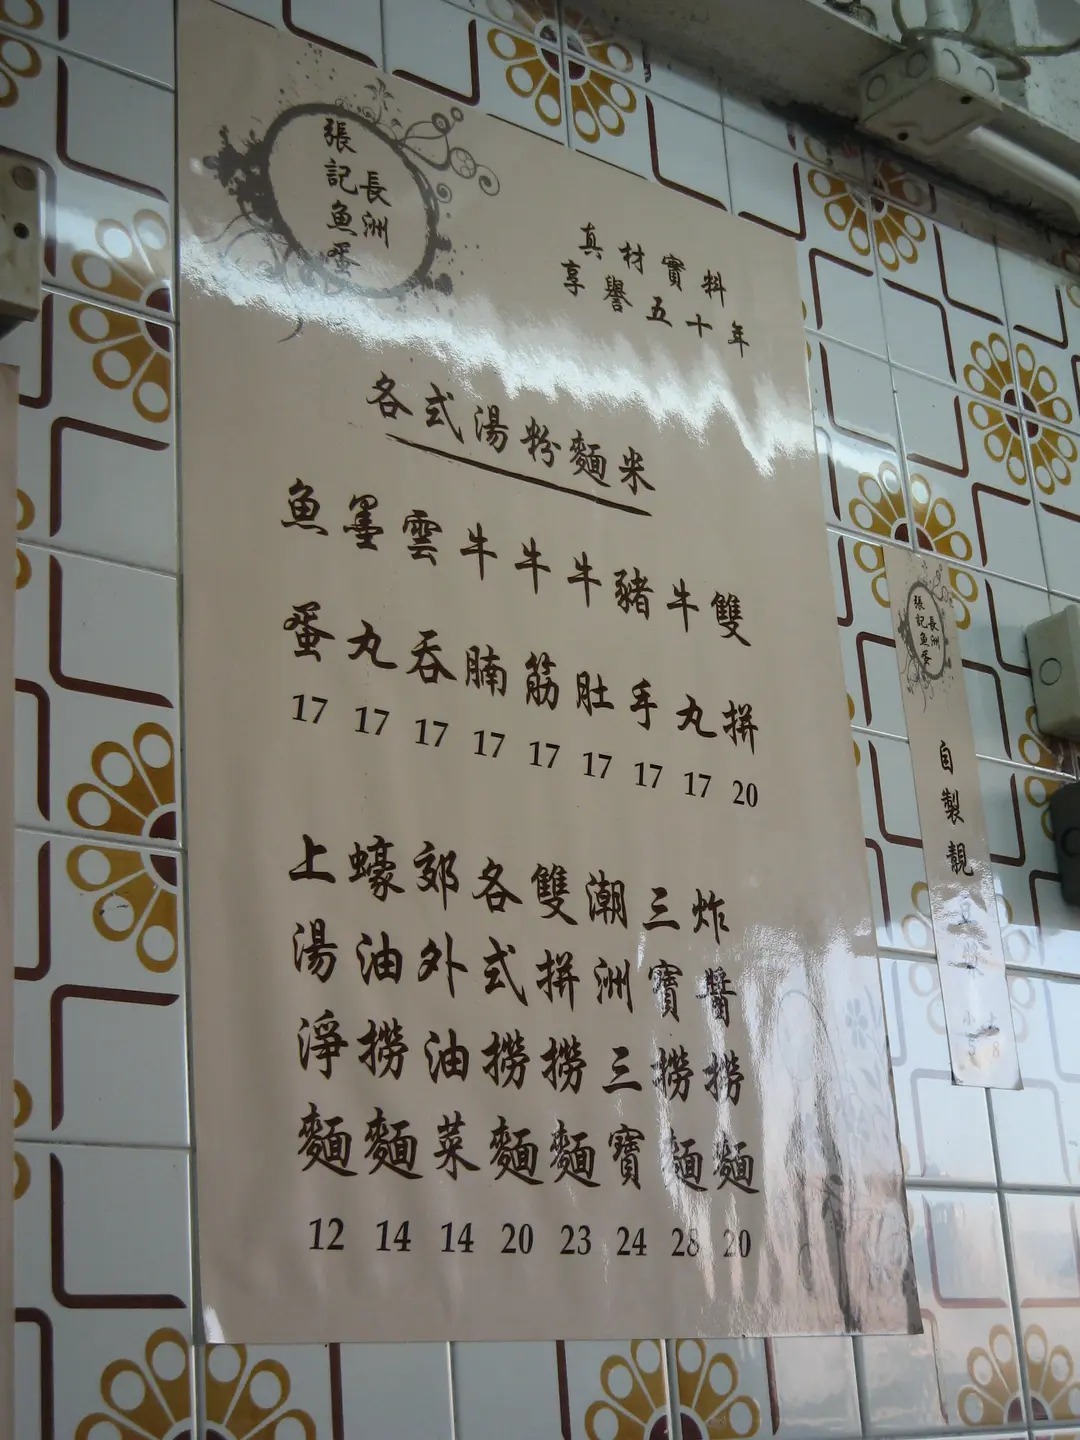 長洲
張記魚蛋
真材實料
享譽五十年
各式湯粉麵米
魚蛋 17
墨丸 17
雲吞 17
牛腩 17
牛筋 17
牛肚 17
豬手 17
牛丸 17
雙拼 20
上湯淨麵 12
蠔油撈麵 14
郊外油菜 14
各式撈麵 20
雙拼撈麵 23
潮洲三寶 24
三寶撈麵 28
炸醬撈麵 20
長洲
張記魚蛋
自製靚
小 大
5 8